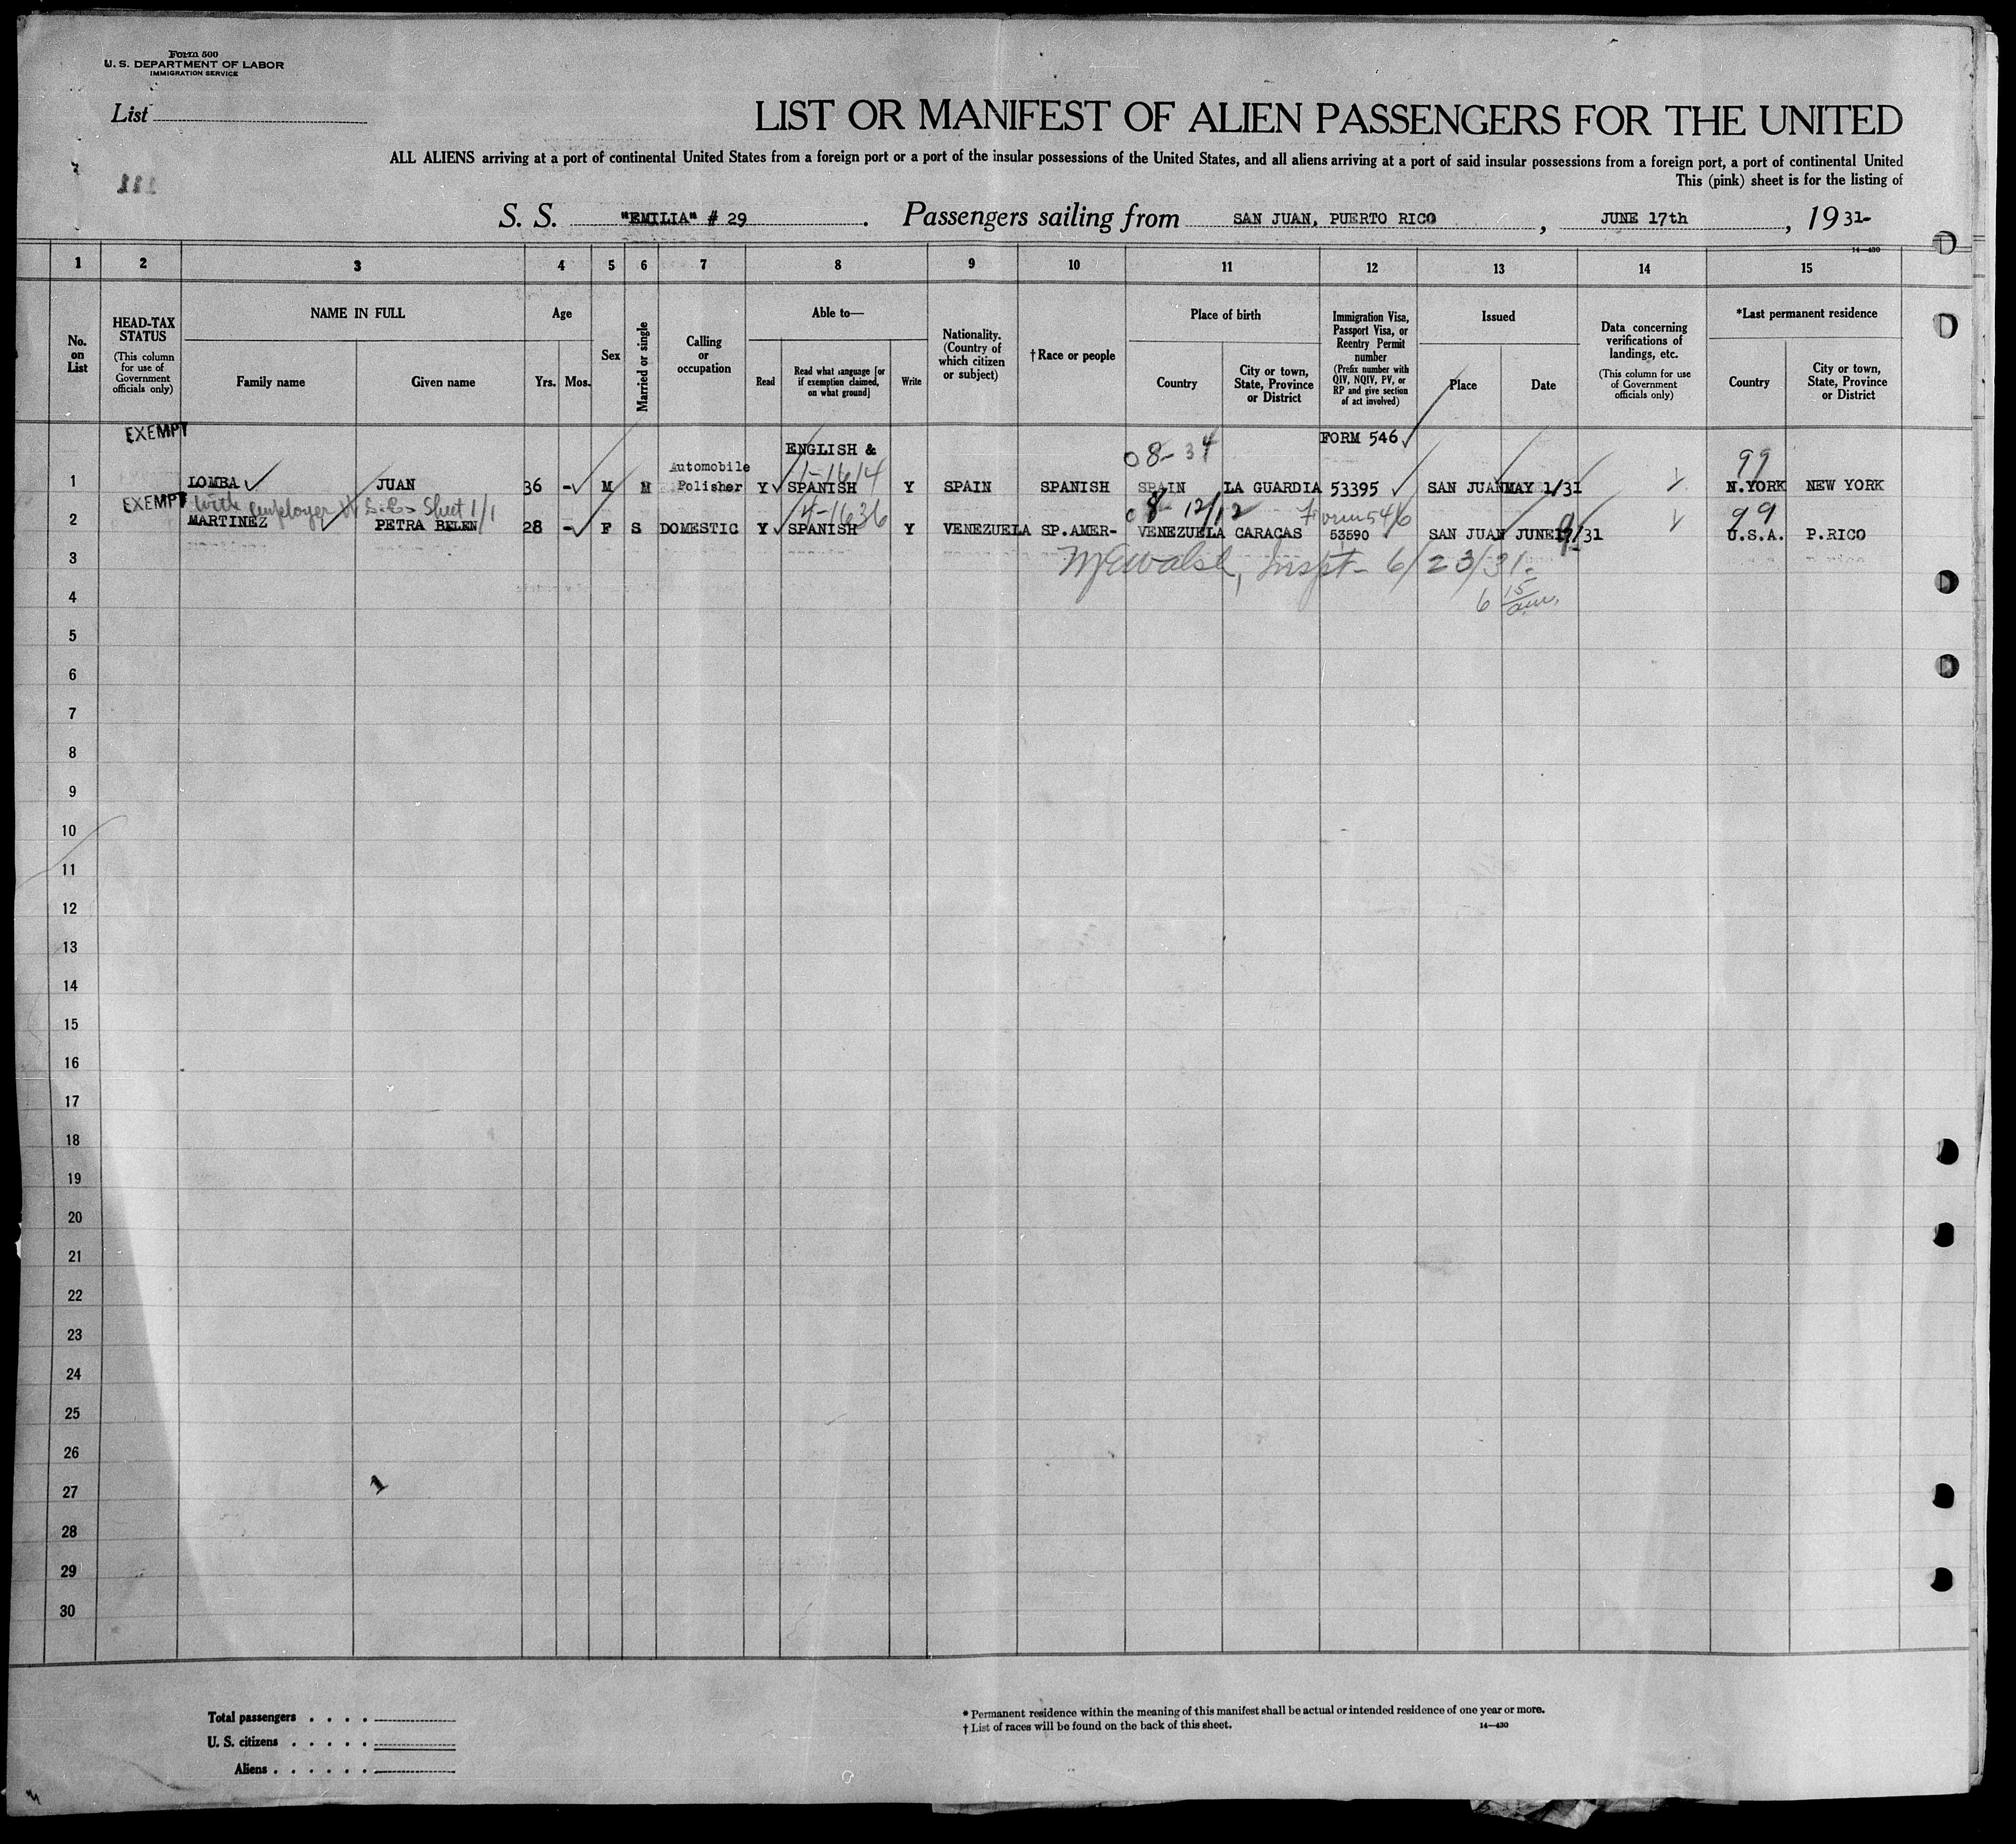 Form 500
U. S. DEPARTMENT OF LABOR
IMMIGRATION SERVICE
List
LIST OR MANIFEST OF ALIEN PASSENGERS FOR THE UNITED
ALL ALIENS arriving at a port of continental United States from a foreign port or a port of the insular possessions of the United States, and all aliens arriving at a port of said insular possessions from a foreign port, a port of continental United
This (pink) sheet is for the listing of
111
S. S. "EMILIA" # 29. Passengers sailing from SAN JUAN, PUERTO RICO, JUNE 17th, 1931-
14—430
1 2 3 4 5 6 7 8 9 10 11 12 13 14 15
No. on List
HEAD-TAX STATUS
(This column for use of Government officials only)
NAME IN FULL
Family name
Given name
Age
Yrs. Mos.
Sex
Married or single
Calling or occupation
Able to—
Read
Read what language [or if exemption claimed, on what ground]
Write
Nationality. (Country of which citizen or subject)
† Race or people
Place of birth
Country
City or town, State, Province or District
Immigration Visa, Passport Visa, or Reentry Permit number
(Prefix number with QIV, NQIV, PV, or RP and give section of act involved)
Issued
Place
Date
Data concerning verifications of landings, etc.
(This column for use of Government officials only)
*Last permanent residence
Country
City or town, State, Province or District
EXEMPT
ENGLISH &
08-34
FORM 546
99
Automobile
1-1614
1 LOMBA JUAN 36 - M M Polisher Y SPANISH Y SPAIN SPANISH SPAIN LA GUARDIA 53395 SAN JUAN MAY 1/31 N.YORK NEW YORK
EXEMPT
With employer Sheet 1/1
14-1636
08-12/12
Form 546
99
2 MARTINEZ PETRA BELEN 28 - F S DOMESTIC Y SPANISH Y VENEZUELA SP.AMER- VENEZUELA CARACAS 53590 SAN JUAN JUNE /31 U.S.A. P.RICO
3
Inspt- 6/23/31.
4
6 15 am.
5
6
7
8
9
10
11
12
13
14
15
16
17
18
19
20
21
22
23
24
25
26
27
1
28
29
30
Total passengers . . . .
U. S. citizens . . . . .
Aliens . . . . . .
* Permanent residence within the meaning of this manifest shall be actual or intended residence of one year or more.
† List of races will be found on the back of this sheet.
14—430